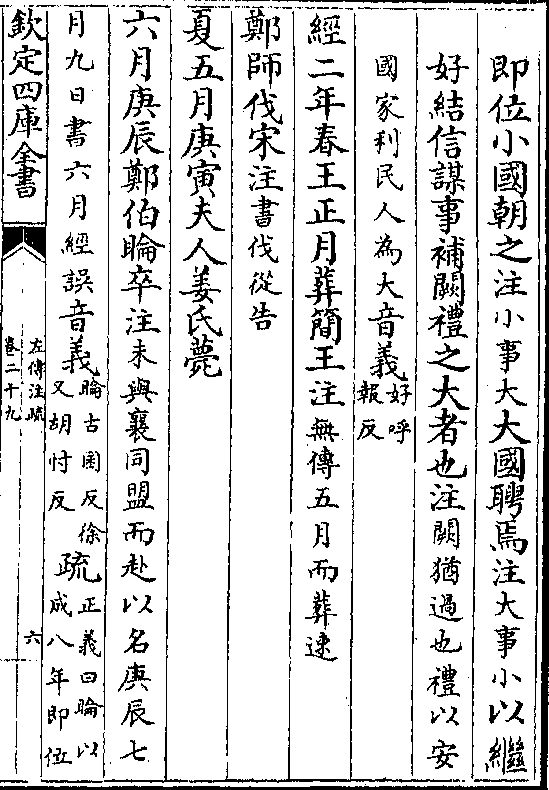 即位小國朝之注小事大大國聘焉注大事小以繼
好結信謀事補闕禮之大者也注闕猶過也禮以安
國家利民人為大音義好呼報反
經二年春王正月葬簡王注無傳五月而葬速
鄭師伐宋注書伐從告
夏五月庚寅夫人姜氏薨
六月庚辰鄭伯睔卒注未與襄同盟而赴以名庚辰七
月九日書六月經誤音義睔古囷反徐又胡忖反疏正義曰睔以成八年即位
欽定四庫全書
左傳注疏
卷二十九
六